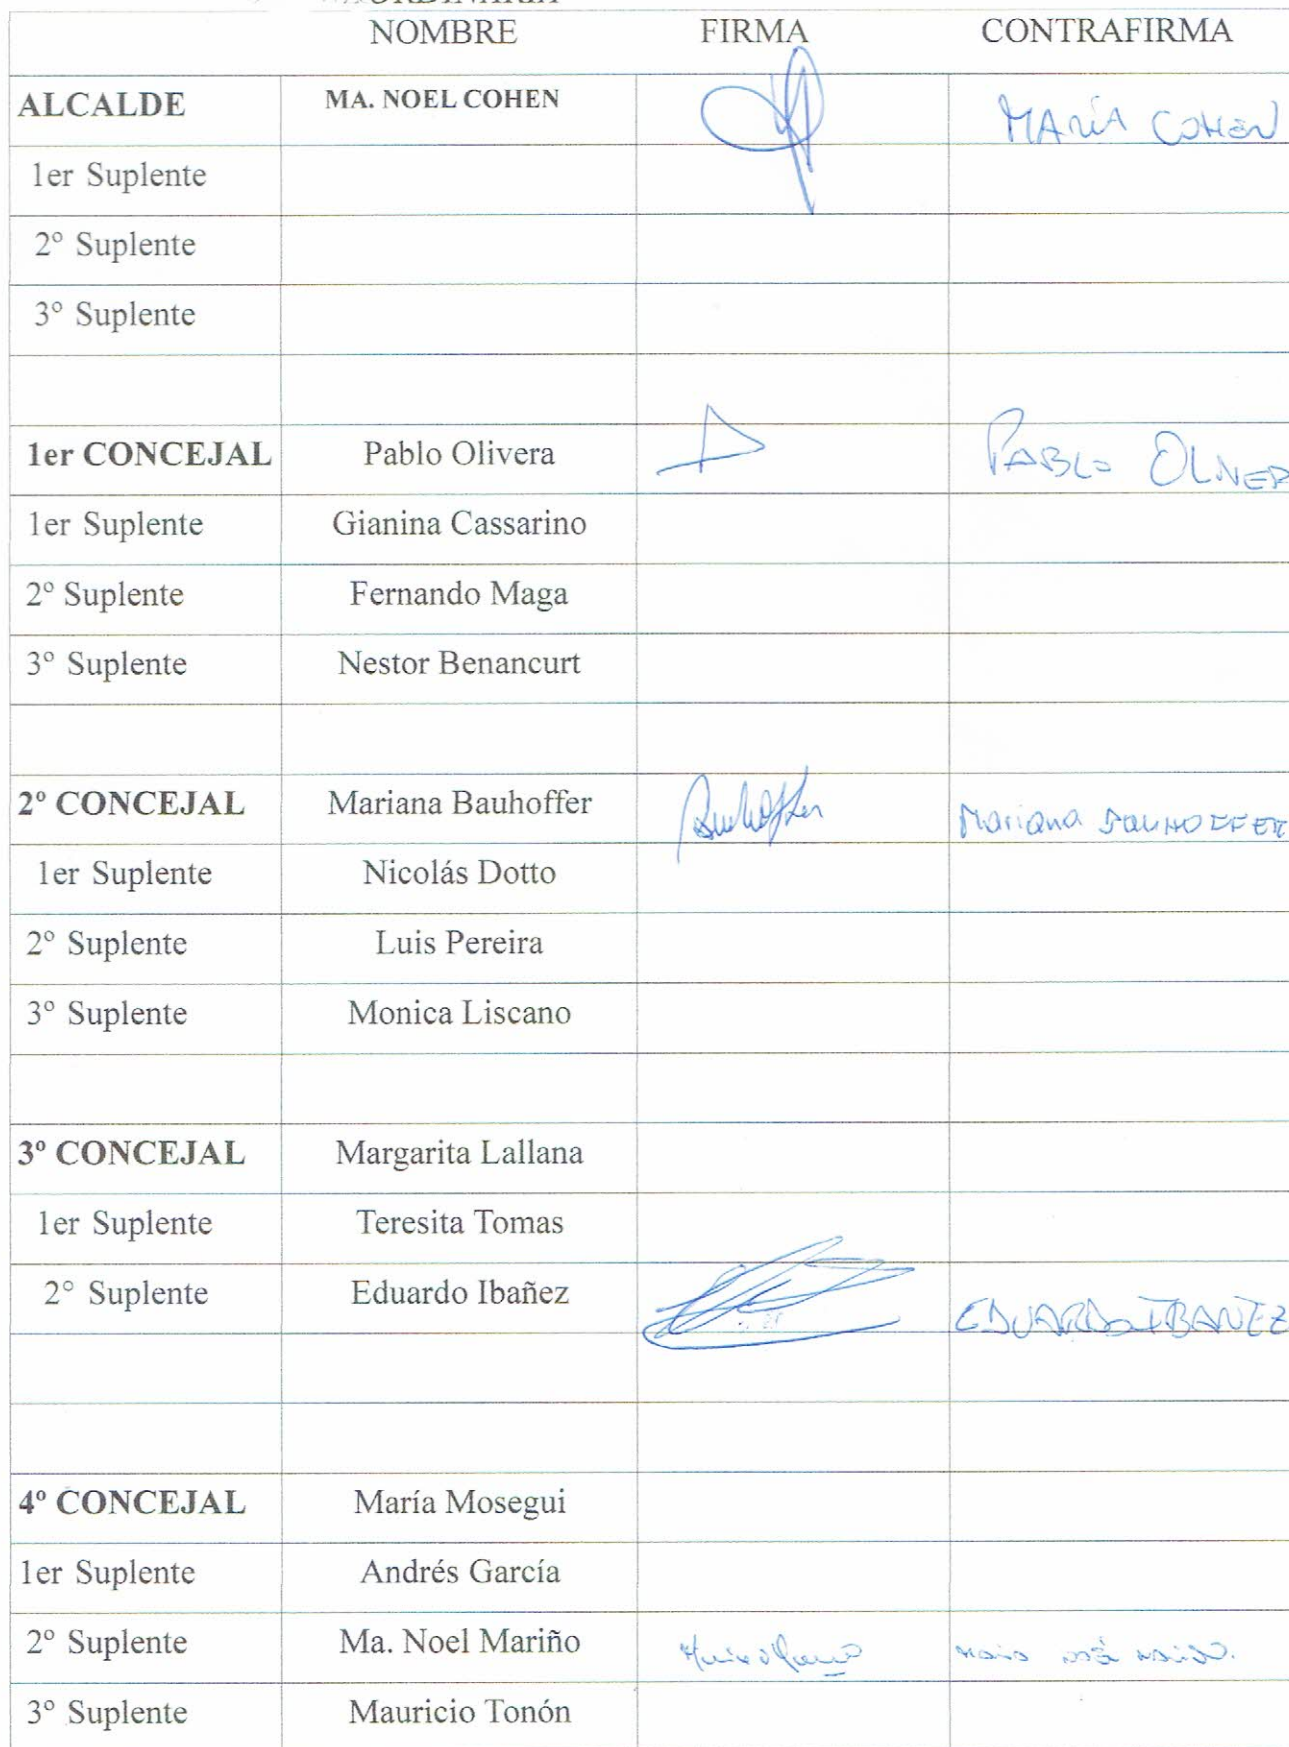 ORDINARIA
NOMBRE FIRMA CONTRAFIRMA
ALCALDE MA. NOEL COHEN MARÍA COHEN
1er Suplente
2° Suplente
3° Suplente
1er CONCEJAL Pablo Olivera PABLO OLIVER
1er Suplente Gianina Cassarino
2º Suplente Fernando Maga
3º Suplente Nestor Benancurt
2º CONCEJAL Mariana Bauhoffer Bauhoffer Mariana BAUHOFFER
1er Suplente Nicolás Dotto
2º Suplente Luis Pereira
3º Suplente Monica Liscano
3º CONCEJAL Margarita Lallana
1er Suplente Teresita Tomas
2° Suplente Eduardo Ibañez EDUARDO IBAÑEZ
4º CONCEJAL María Mosegui
1er Suplente Andrés García
2º Suplente Ma. Noel Mariño
3º Suplente Mauricio Tonón